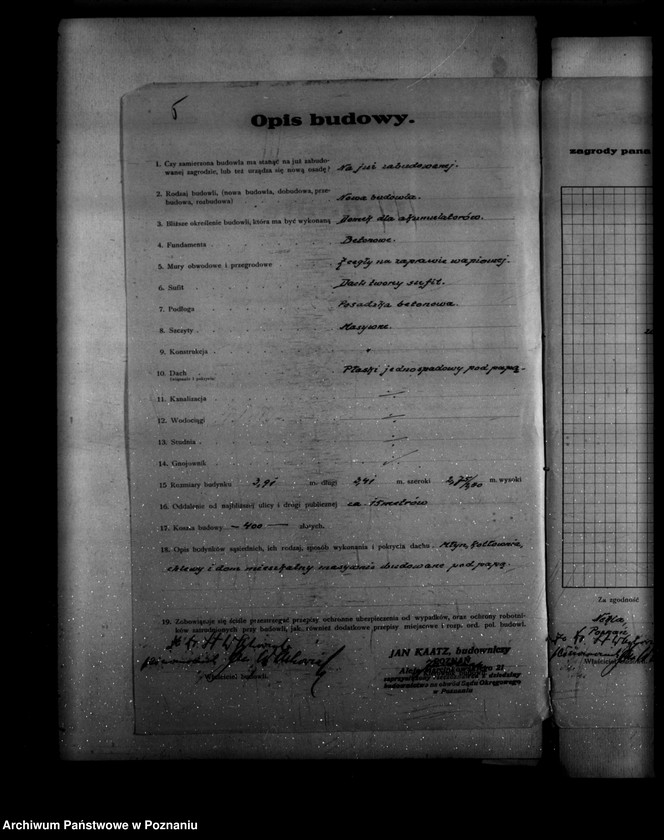 5
Opis budowy.
1. Czy zamierzona budowla ma stanąć na już zabudo-
wanej zagrodzie, lub też urządza się nową osadę? Na już zabudowanej.
2. Rodzaj budowli, (nowa budowla, dobudowa, prze-
budowa, rozbudowa) Nowa budowla.
3. Bliższe określenie budowli, która ma być wykonaną Domek dla akumulatorów.
4. Fundamenta Betonowe.
5. Mury obwodowe i przegrodowe Z cegły na zaprawie wapiennej.
6. Sufit Dach tworzy sufit.
7. Podłoga Posadzka betonowa.
8. Szczyty Masywne.
9. Konstrukcja
10. Dach Płaski jednospadowy pod papą.
11. Kanalizacja
12. Wodociągi
13. Studnia
14. Gnojownik
15 Rozmiary budynku m. długi 2,41 m. szeroki m. wysoki
16. Oddalenie od najbliższej ulicy i drogi publicznej ca 15 metrów
17. Koszta budowy — 400 — złotych.
18. Opis budynków sąsiednich, ich rodzaj, sposób wykonania i pokrycia dachu Młyn, kotłownia,
chlewy i dom mieszkalny masywnie budowane pod papą.
19. Zobowiązuje się ściśle przestrzegać przepisy ochronne ubezpieczenia od wypadków, oraz ochrony robotni-
ków zatrudnionych przy budowli, jak również dodatkowe przepisy miejscowe i rozp. ord. pol. budowl.
Właściciel budowli.
JAN KAATZ, budowniczy
POZNAŃ
Aleje Marcinkowskiego 21
zaprzysiężony rzeczoznawca z dziedziny
budownictwa na obwód Sądu Okręgowego
w Poznaniu
zagrody pana
Za zgodność
Poznań
Właściciel
Archiwum Państwowe w Poznaniu